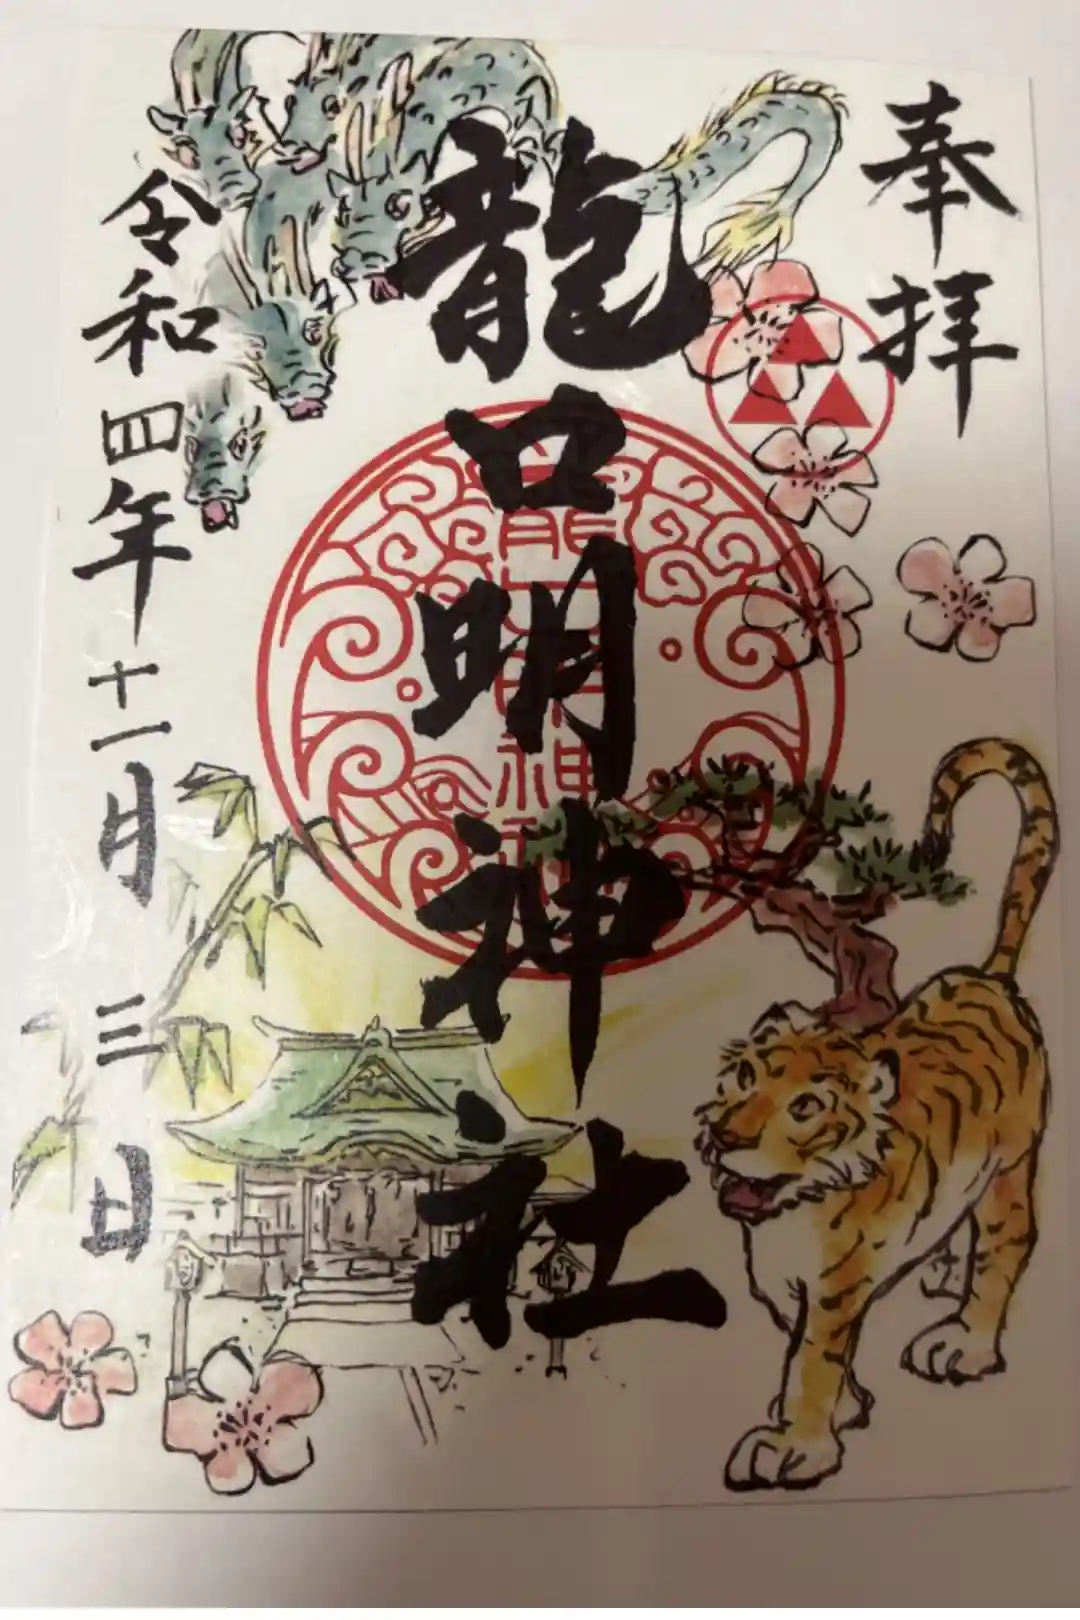 奉拝
龍口明神社
龍口明神社
令和四年十一月三日